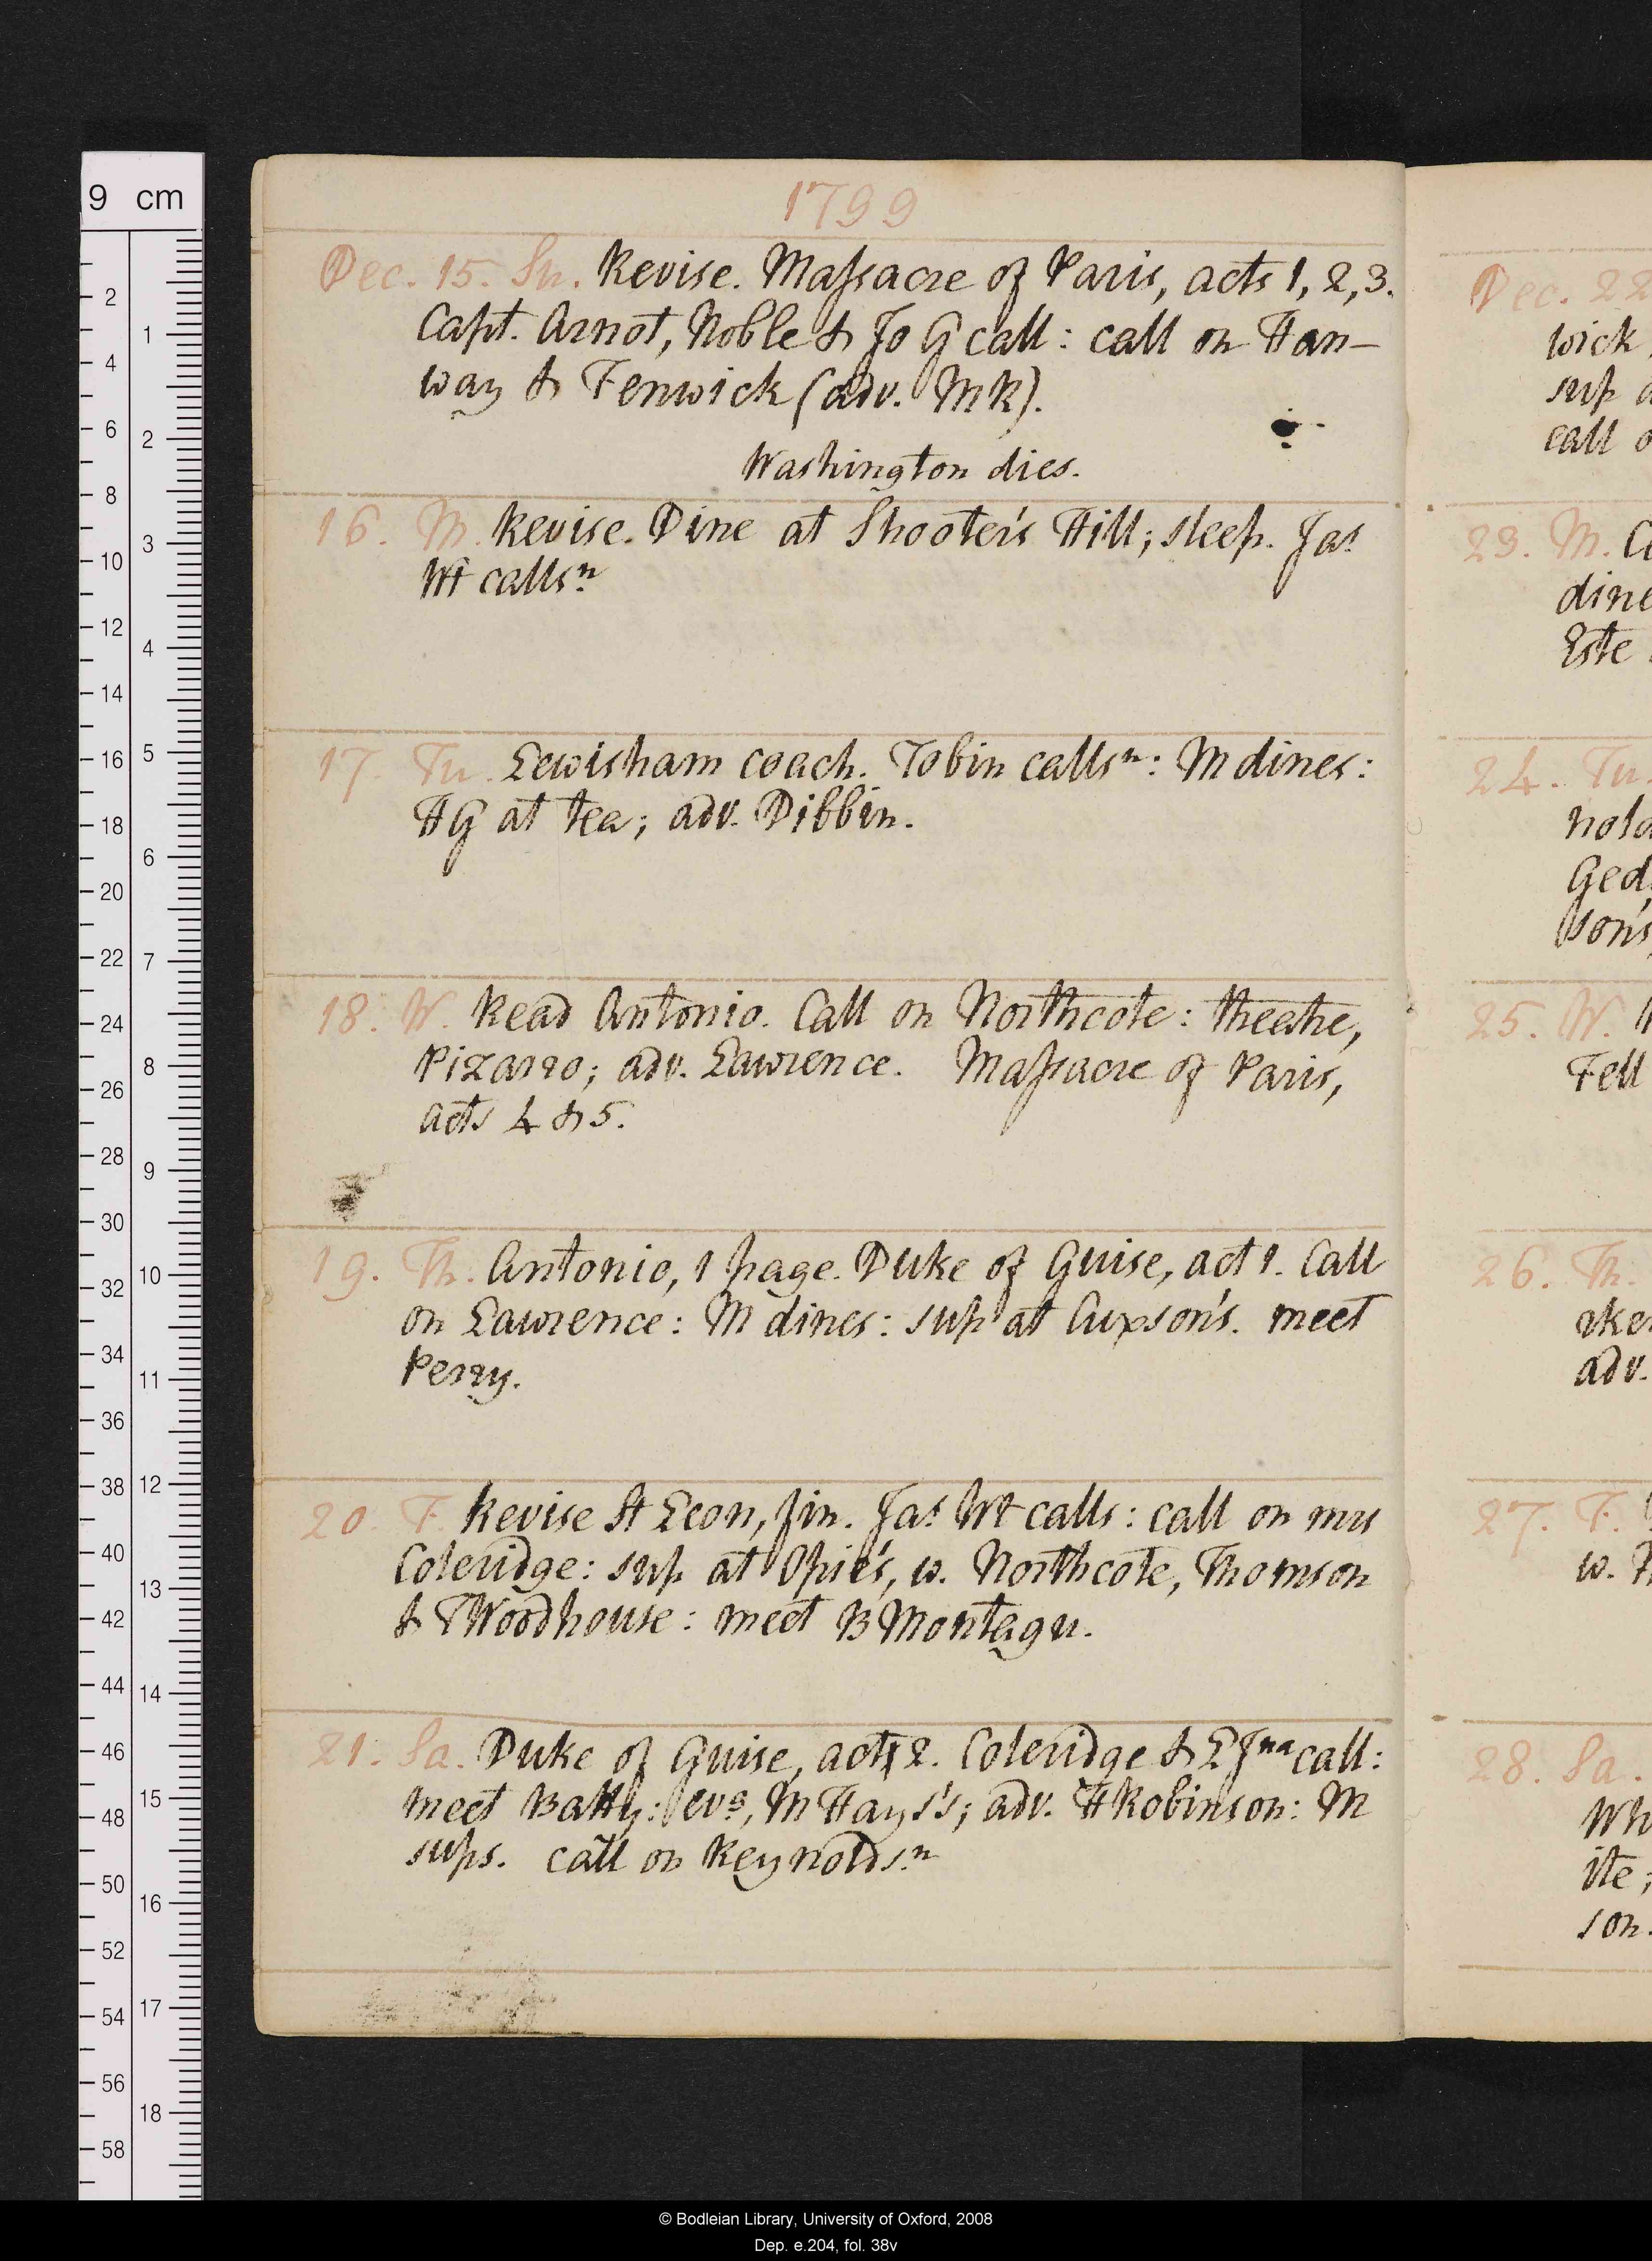 1799
Dec. 15. Su. Revise. Maſsacre of Paris, acts 1, 2, 3.
Capt. Arnot, Noble & Jo G call: call on Han-
way & Fenwick (adv. MR).
Washington dies.
16. M. Revise. Dine at Shooter's Hill; sleep. Jas
Wt calls n
17. Tu. Lewisham coach. Tobin calls n: M dines:
HG at tea; adv. Dibbin.
18. W. Read Antonio. Call on Northcote: theatre,
Pizarro; adv. Lawrence. Maſsacre of Paris,
acts 4 & 5.
19. Th. Antonio, 1 page. Duke of Guise, act 1. Call
on Lawrence: M dines: sup at Cuxson's. meet
Perry.
20. F. Revise St Leon, fin. Jas Wt calls: call on mrs
Coleridge: sup at Opie's, w. Northcote, Thomson
& T Woodhouse: meet B Montagu.
21. Sa. Duke of Guise, act 2. Coleridge & L Jna call:
meet Batty: evg, M Hays's; adv. H Robinson: M
sups. call on Reynolds n
Dec. 22
wick
sup
call
23. M.
dine
Este
24. Tu.
Ged
son's,
25. W.
Fell
26. Th.
adv.
27. F.
w.
28. Sa.
Wh
ite;
son.
9 cm
2
4
6
8
10
12
14
16
18
20
22
24
26
28
30
32
34
36
38
40
42
44
46
48
50
52
54
56
58
1
2
3
4
5
6
7
8
9
10
11
12
13
14
15
16
17
18
© Bodleian Library, University of Oxford, 2008
Dep. e.204, fol. 38v